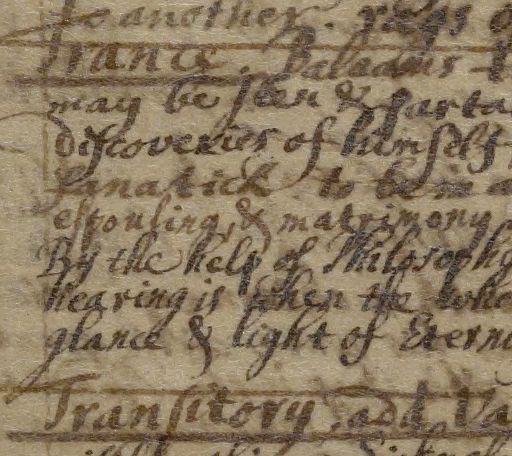 to another. rests
Trance. Balaams
may be seen & parta
discoveries of himself
Fanatick to be in a
espousing, & matrimony
By the help of Philosophy
hearing is when the whole
glance & light of Eterna
Transitory. add. Va